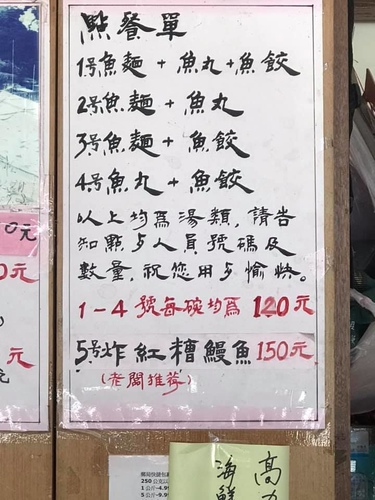 點餐單
1號魚麵+魚丸+魚餃
2號魚麵+魚丸
3號魚麵+魚餃
4號魚丸+魚餃
以上均為湯類,請告
知點与人員號碼及
數量,祝您用与愉快。
1-4號每碗均為120元
5號炸紅糟鰻魚150元
(老闆推荐)
0元
0元
元
250公克以
1公斤-4.99
5公斤-9.99
高
海鮮